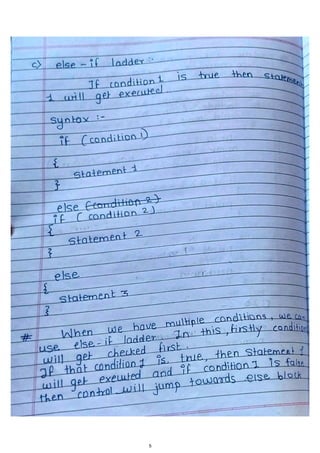 c) else - if ladder :-
If condition 1 is true then statement
1 will get executed
Syntax :-
if (condition 1)
{
Statement 1
}
else (condition 2)
if ( condition 2)
{
Statement 2
}
else
{
Statement 3
}
# When we have multiple conditions, we can
use else-if ladder. In this, firstly condition
will get checked first.
If that condition 1 is true, then Statement 1
will get executed and if condition 1 is false
then control will jump towards else block
5